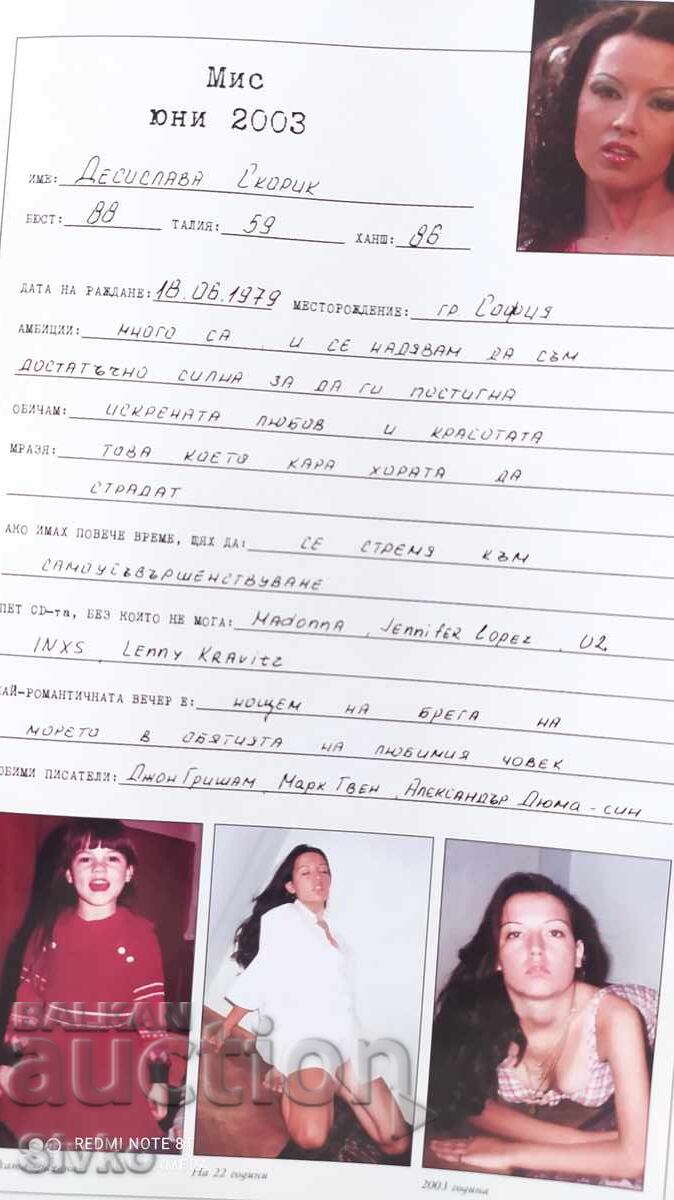 Мис
юни 2003
ИМЕ: ДЕСИСЛАВА СКОРИК
БЮСТ: 88 ТАЛИЯ: 59 ХАНШ: 86
ДАТА НА РАЖДАНЕ: 18.06.1979 МЕСТОРОЖДЕНИЕ: ГР. СОФИЯ
АМБИЦИИ: МНОГО СА И СЕ НАДЯВАМ ДА СЪМ
ДОСТАТЪЧНО СИЛНА ЗА ДА ГИ ПОСТИГНА
ОБИЧАМ: ИСКРЕНАТА ЛЮБОВ И КРАСОТАТА
МРАЗЯ: ТОВА КОЕТО КАРА ХОРАТА ДА
СТРАДАТ
АКО ИМАХ ПОВЕЧЕ ВРЕМЕ, ЩЯХ ДА: СЕ СТРЕМЯ КЪМ
САМОУСЪВЪРШЕНСТВУВАНЕ
ПЕТ CD-та, БЕЗ КОИТО НЕ МОГА: MADONNA, JENNIFER LOPEZ, U2
INXS, LENNY KRAVITZ
НАЙ-РОМАНТИЧНАТА ВЕЧЕР Е: НОЩЕМ НА БРЕГА НА
МОРЕТО В ОБЯТИЯТА НА ЛЮБИМИЯ ЧОВЕК
ЮБИМИ ПИСАТЕЛИ: ДЖОН ГРИШАМ, МАРК ТВЕН, АЛЕКСАНДЪР ДЮМА - СИН
BALKAN
auction
REDMI NOTE 8T
Sivko
На 22 години
2003 година